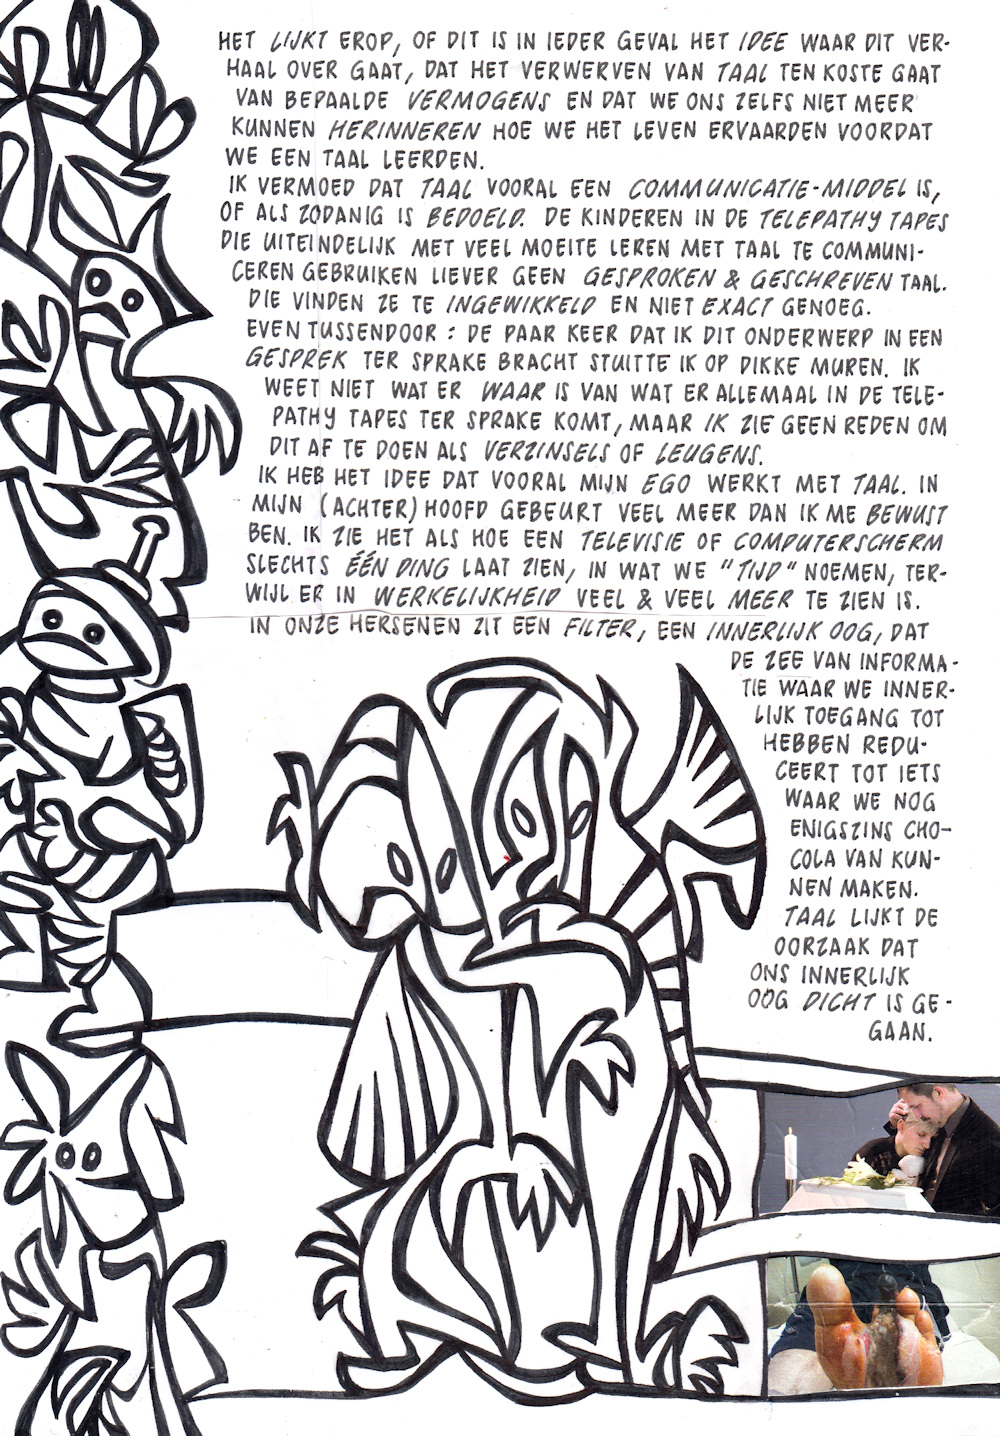 HET LIJKT EROP, OF DIT IS IN IEDER GEVAL HET IDEE WAAR DIT VER-
HAAL OVER GAAT, DAT HET VERWERVEN VAN TAAL TEN KOSTE GAAT
VAN BEPAALDE VERMOGENS EN DAT WE ONS ZELFS NIET MEER
KUNNEN HERINNEREN HOE WE HET LEVEN ERVAARDEN VOORDAT
WE EEN TAAL LEERDEN.
IK VERMOED DAT TAAL VOORAL EEN COMMUNICATIE-MIDDEL IS,
OF ALS ZODANIG IS BEDOELD. DE KINDEREN IN DE TELEPATHY TAPES
DIE UITEINDELIJK MET VEEL MOEITE LEREN MET TAAL TE COMMUNI-
CEREN GEBRUIKEN LIEVER GEEN GESPROKEN & GESCHREVEN TAAL.
DIE VINDEN ZE TE INGEWIKKELD EN NIET EXACT GENOEG.
EVEN TUSSENDOOR: DE PAAR KEER DAT IK DIT ONDERWERP IN EEN
GESPREK TER SPRAKE BRACHT STUITTE IK OP DIKKE MUREN. IK
WEET NIET WAT ER WAAR IS VAN WAT ER ALLEMAAL IN DE TELE-
PATHY TAPES TER SPRAKE KOMT, MAAR IK ZIE GEEN REDEN OM
DIT AF TE DOEN ALS VERZINSELS OF LEUGENS.
IK HEB HET IDEE DAT VOORAL MIJN EGO WERKT MET TAAL. IN
MIJN (ACHTER) HOOFD GEBEURT VEEL MEER DAN IK ME BEWUST
BEN. IK ZIE HET ALS HOE EEN TELEVISIE OF COMPUTERSCHERM
SLECHTS ÉÉN DING LAAT ZIEN, IN WAT WE "TIJD" NOEMEN, TER-
WIJL ER IN WERKELIJKHEID VEEL & VEEL MEER TE ZIEN IS.
IN ONZE HERSENEN ZIT EEN FILTER, EEN INNERLIJK OOG, DAT
DE ZEE VAN INFORMA-
TIE WAAR WE INNER-
LIJK TOEGANG TOT
HEBBEN REDU-
CEERT TOT IETS
WAAR WE NOG
ENIGSZINS CHO-
COLA VAN KUN-
NEN MAKEN.
TAAL LIJKT DE
OORZAAK DAT
ONS INNERLIJK
OOG DICHT IS GE-
GAAN.